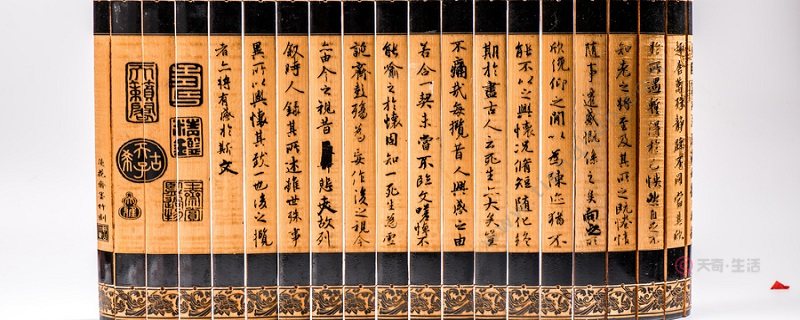 趣舍萬殊靜躁不同當其欣
於所遇暫得於己快然自足不
知老之將至及其所之既惓情
隨事遷感慨係之矣向之所
欣俛仰之間以為陳迹猶不
能不以之興懷況脩短隨化終
期於盡古人云死生亦大矣豈
不痛哉每攬昔人興感之由
若合一契未嘗不臨文嗟悼不
能喻之於懷固知一死生為虛
誕齊彭殤為妄作後之視今
亦由今之視昔悲夫故列
敘時人錄其所述雖世殊事
異所以興懷其致一也後之攬
者亦將有感於斯文
古希天子
天奇·生活